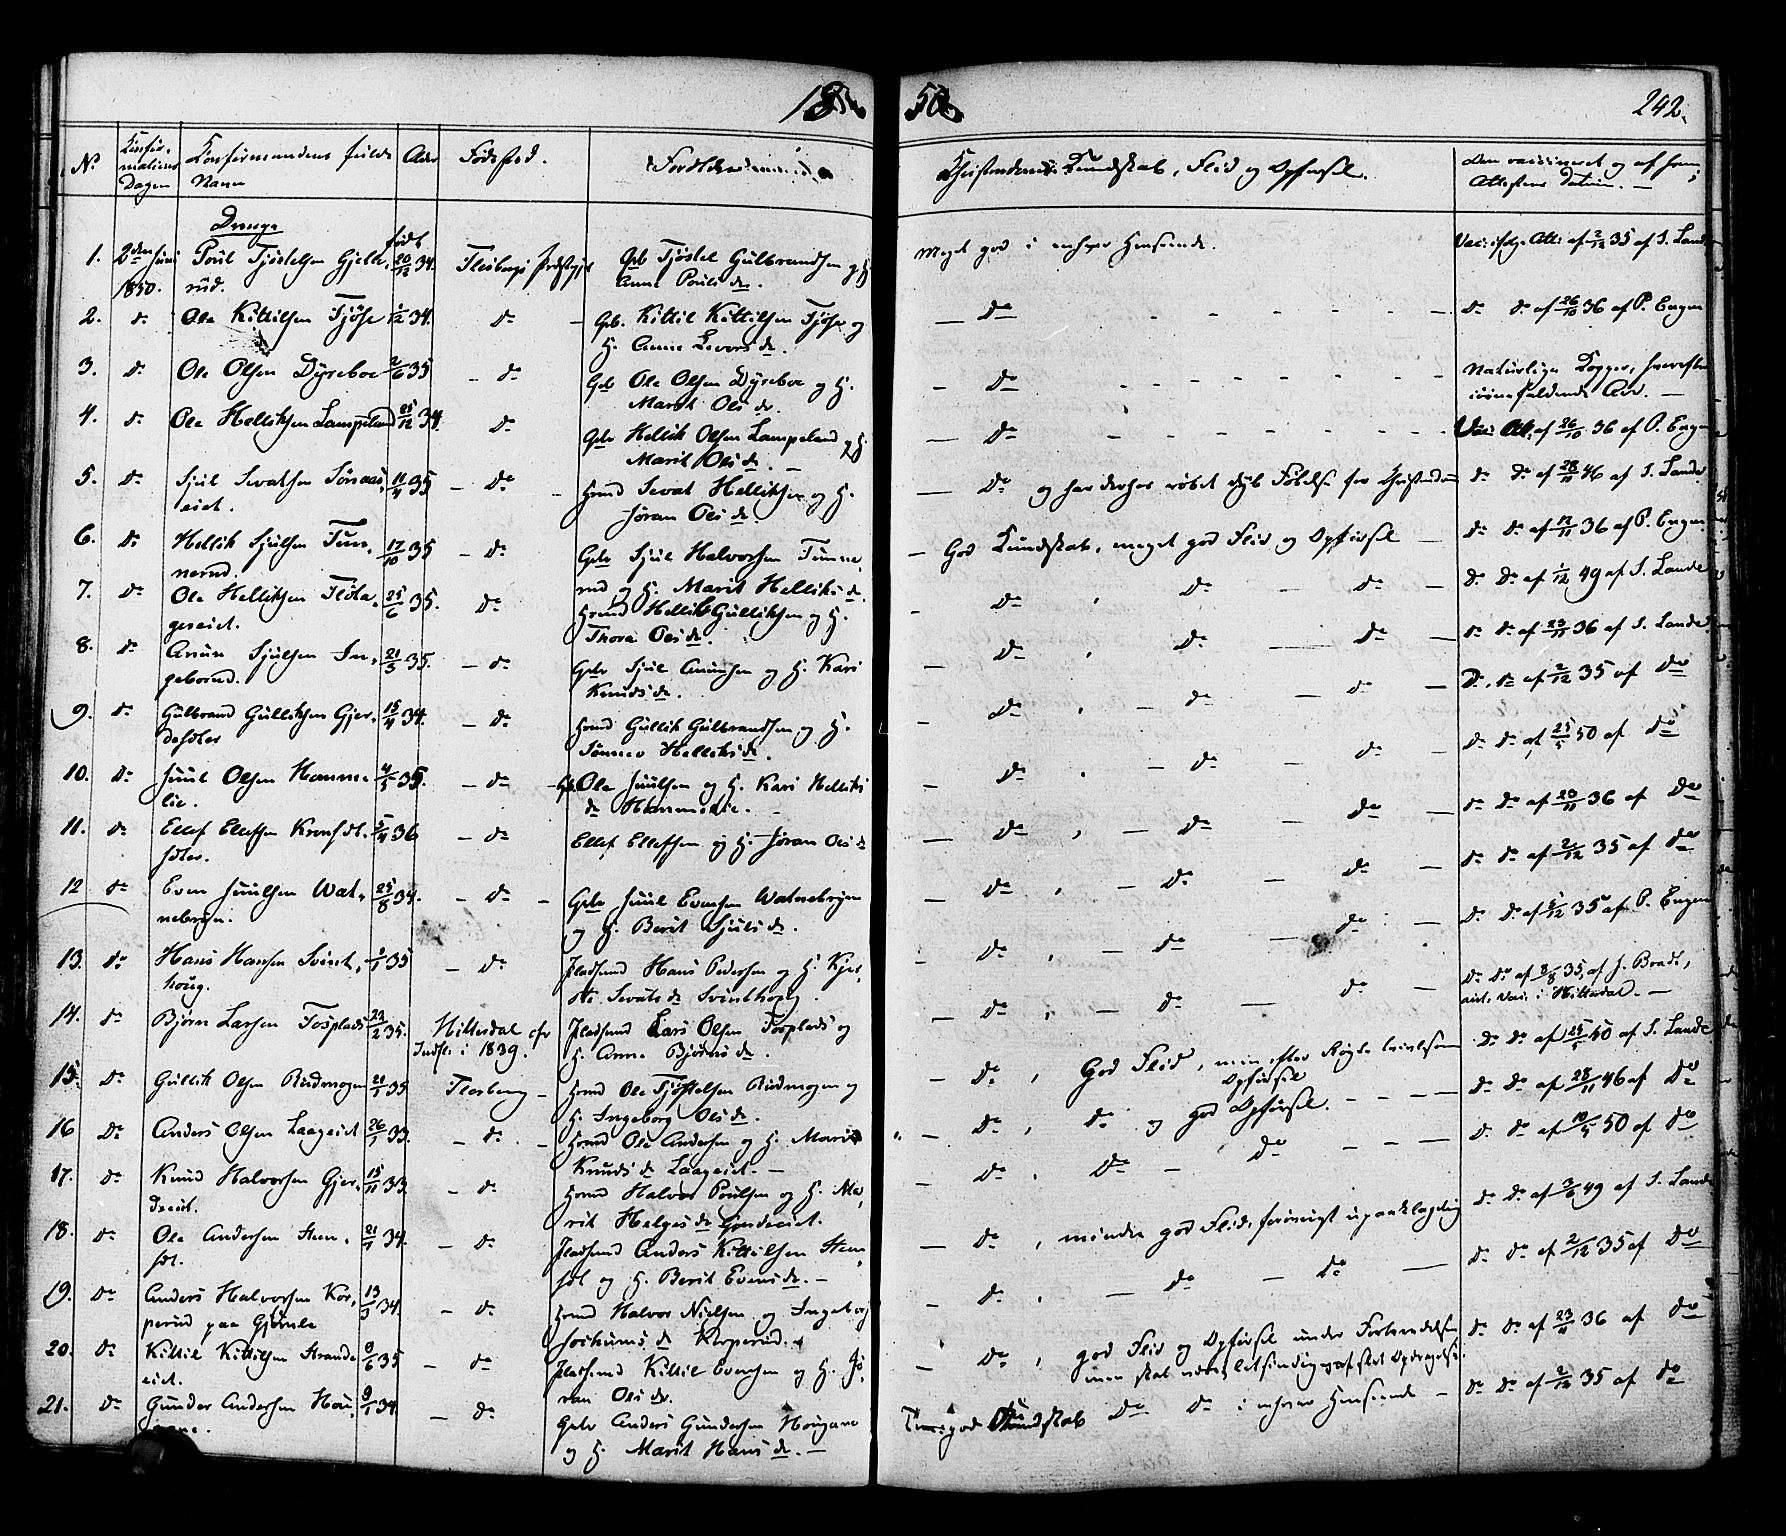 1850.
242.
No. Konfirmations Dagen Konfirmandens fulde Navn Alder Fødested. Forældrenes Christendoms Kundskab, Flid og Opførsel. Naar vaccineret og af hvem; Attestens Datum.
Drenge
1. 2den Juni 1850. Povel Tjostelsen Gjellerud. født 20/12 34. Flesbergs Præstegj. Gbr Tjostel Gulbrandsen og H. Anne Pouls de. Meget god i enhver Henseende. Vac: ifølge Att: af 2/12 35 af S. Lande
2. do Ole Kittilsen Tjøse 1/12 34. do Gbr. Kittil Kittilsen Tjøse og H. Anne Levors de. do do do af 26/10 36 af P. Engen
3. do Ole Olsen Dyreboe 2/6 35 do Gbr Ole Olsen Dyreboe og H. Marit Ols de. do Naturlige Kopper, hvorefter iøinefaldende Ar.
4. do Ole Helliksen Lampeland 25/12 34. do Gbr Hellik Olsen Lampeland og H. Marit Ols de. do Vac: Att: af 26/10 36 af P. Engen
5. do Sjul Sevatsen Sønaaseiet. 11/4 35 do Hmd Sevat Helliksen og H. Jøran Ols de. do og har derhos røbet dyb Følelse for Christendom do do af 28/11 46 af S. Lande
6. do Hellik Sjulsen Tunnerud. 17/10 35 do Gbr Sjul Halvorsen Tunnerud og H. Marit Helliks de. God Kundskab, meget god Flid og Opførsel do do af 12/11 36 af P. Engen
7. do Ole Helliksen Flötageseiet. 25/6 35. do Hmd Hellik Gulliksen og H. Thora Ols de. do do do do do af 1/12 49 af S. Lande
8. do Anun Sjulsen Ingeborud. 21/3 35. do Gbr Sjul Anunsen og H. Kari Knuds de. do do do do do af 23/11 36 af S. Lande
9. do Gulbrand Gulliksen Gjerdesdler 15/11 34. do Hmd Gullik Gulbrandsen og H. Sønnev Helliks de. do do do do do af 2/12 35 af do
10. do Juul Olsen Hammelie. 4/5 35. do Gbr Ole Juulsen og H. Kari Helliks de Hammelie. do do do do do af 25/5 50 af do
11. do Ellef Ellefsen 5/4 36 do Ellef Ellefsen og H. Jøran Ols de do do do do do af 23/11 36 af do
12 do Even Juulsen Watnebryn. 25/8 34. do Gbr Juul Evensen Watnebryn og H. Berit Sjuls de. do do do do do af 2/12 35 af do
13. do Hans Hansen Svinthoug. 1/1 35 do Pladsmd Hans Pedersen og H. Kjersti Sevats de Svinthoug. do do do do do af 5/12 35 af P. Engen
14. do Bjørn Larsen Fosplads 23/2 35. Hitterdal Indfl: i 1839. Pladsmd Lars Olsen Fosplads og H. Anne Bjørns de. do do do do do af 8/8 35 af J. Brade, vac: i Hitterdal.
15. do Gullik Olsen Rudmogen 21/1 35 Flesberg Hmd Ole Tjøstelsen Rudmogen og H. Ingeborg Ols de. do, God Flid, men efter Rygte tvivlsom Opførsel do do af 25/5 50 af S. Lande
16 do Anders Olsen Laageiet 26/1 33. do Hmd Ole Andersen og H. Mari Knuds de Laageiet. do, do og god Opførsel. do do af 28/11 46 af do
17. do Knud Halvorsen Gjerdreiet. 15/11 33 do Hmd Halvor Poulsen og H. Marit Helges de do, do do do do af 10/5 50 af do
18. do Ole Andersen Steensdl. 21/1 34. do Pladsmd Anders Kittilsen Steensdl og H. Berit Evens de. do, mindre god Flid, forøvrigt upaaklagelig do do af 3/6 49 af S. Lande
19. do Anders Halvorsen Korperud paa Gjørnle 13/3 34. do Hmd Halvor Nielsen og Ingeborg Jochums de Korperud. do, do do do do af 2/12 35 af do
20. do Kittil Kittilsen Strandeeiet. 8/6 35 do Pladsmd Kittil Evensen og H. Jøran Ols de. do, god Flid og Opførsel under Forberedelsen, men skal være letsindig og af slet Opdragelse. do do af 23/11 36 af do
21. do Gunder Andersen Hougane. 9/1 34 do Gbr Anders Gundersen Hougane og H. Marit Hans de. Kundskab do do i enhver Henseende do do af 2/12 35 af do